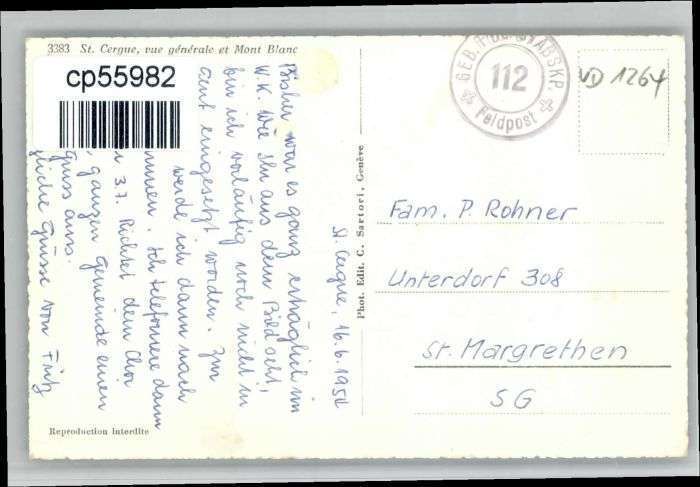 3383 St. Cergue, vue générale et Mont Blanc
cp55982
St. Cergue, 16.6.1954
Bisher war es ganz erträglich im
W.K. Wie Ihr aus dem Bild seht,
bin ich vorläufig noch nicht in
eingesetzt worden. Zum
werde ich dann noch
. Ich telefoniere dann
3.7. Richtet dem Chor
, ganzen Gemeinde einen
Gruss aus.
liche Grüsse von Fritz
Phot. Edit. C. Sartori, Genève
Reproduction interdite
GEB. STABSKP.
112
Feldpost
VD 1264
Fam. P. Rohner
Unterdorf 308
St. Margrethen
SG